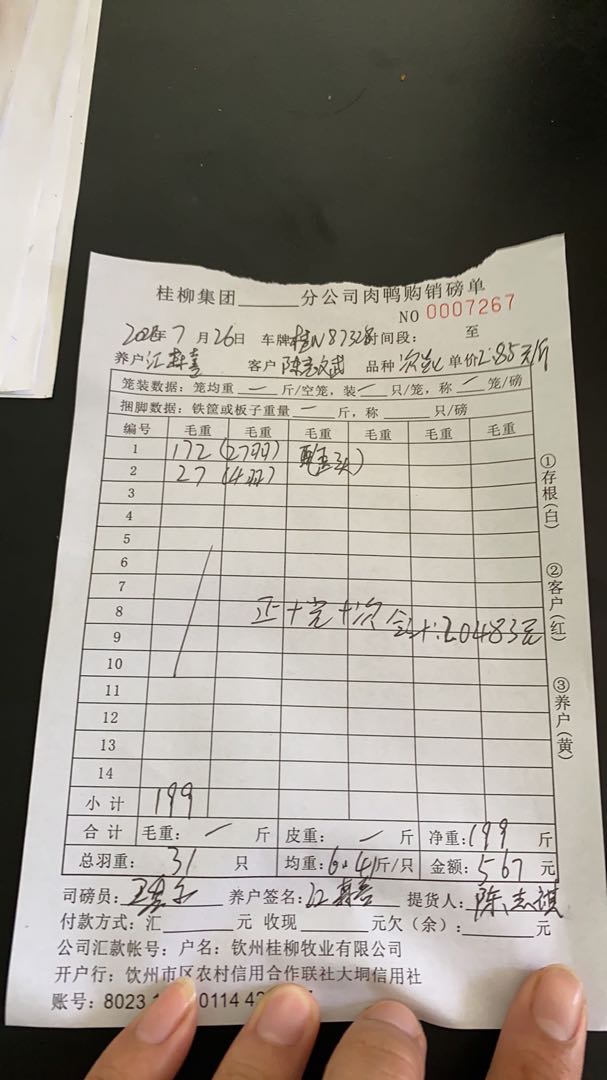 桂柳集团______分公司肉鸭购销磅单
NO 0007267
年7月26日 车牌桂N8732 时间段: 至
养户 江 客户 陈志 品种 次 单价2.85元/斤
笼装数据: 笼均重 一 斤/空笼, 装 一 只/笼, 称 一 笼/磅
捆脚数据: 铁筐或板子重量 一 斤, 称 只/磅
编号 毛重 毛重 毛重 毛重 毛重 毛重
1 172 (27羽)
2 27 (4羽)
3
4
5
6
7
8 正+光+次 合计:20483元
9
10
11
12
13
14
小计 199
合计 毛重: 一 斤 皮重: 一 斤 净重: 199 斤
总羽重: 31 只 均重: 6.41斤/只 金额: 567 元
司磅员: 养户签名: 江 提货人: 陈志
付款方式: 汇______元 收现______元欠(余):______元
公司汇款帐号: 户名: 钦州桂柳牧业有限公司
开户行: 钦州市区农村信用合作联社大垌信用社
账号: 8023 0114
①存根(白)
②客户(红)
③养户(黄)